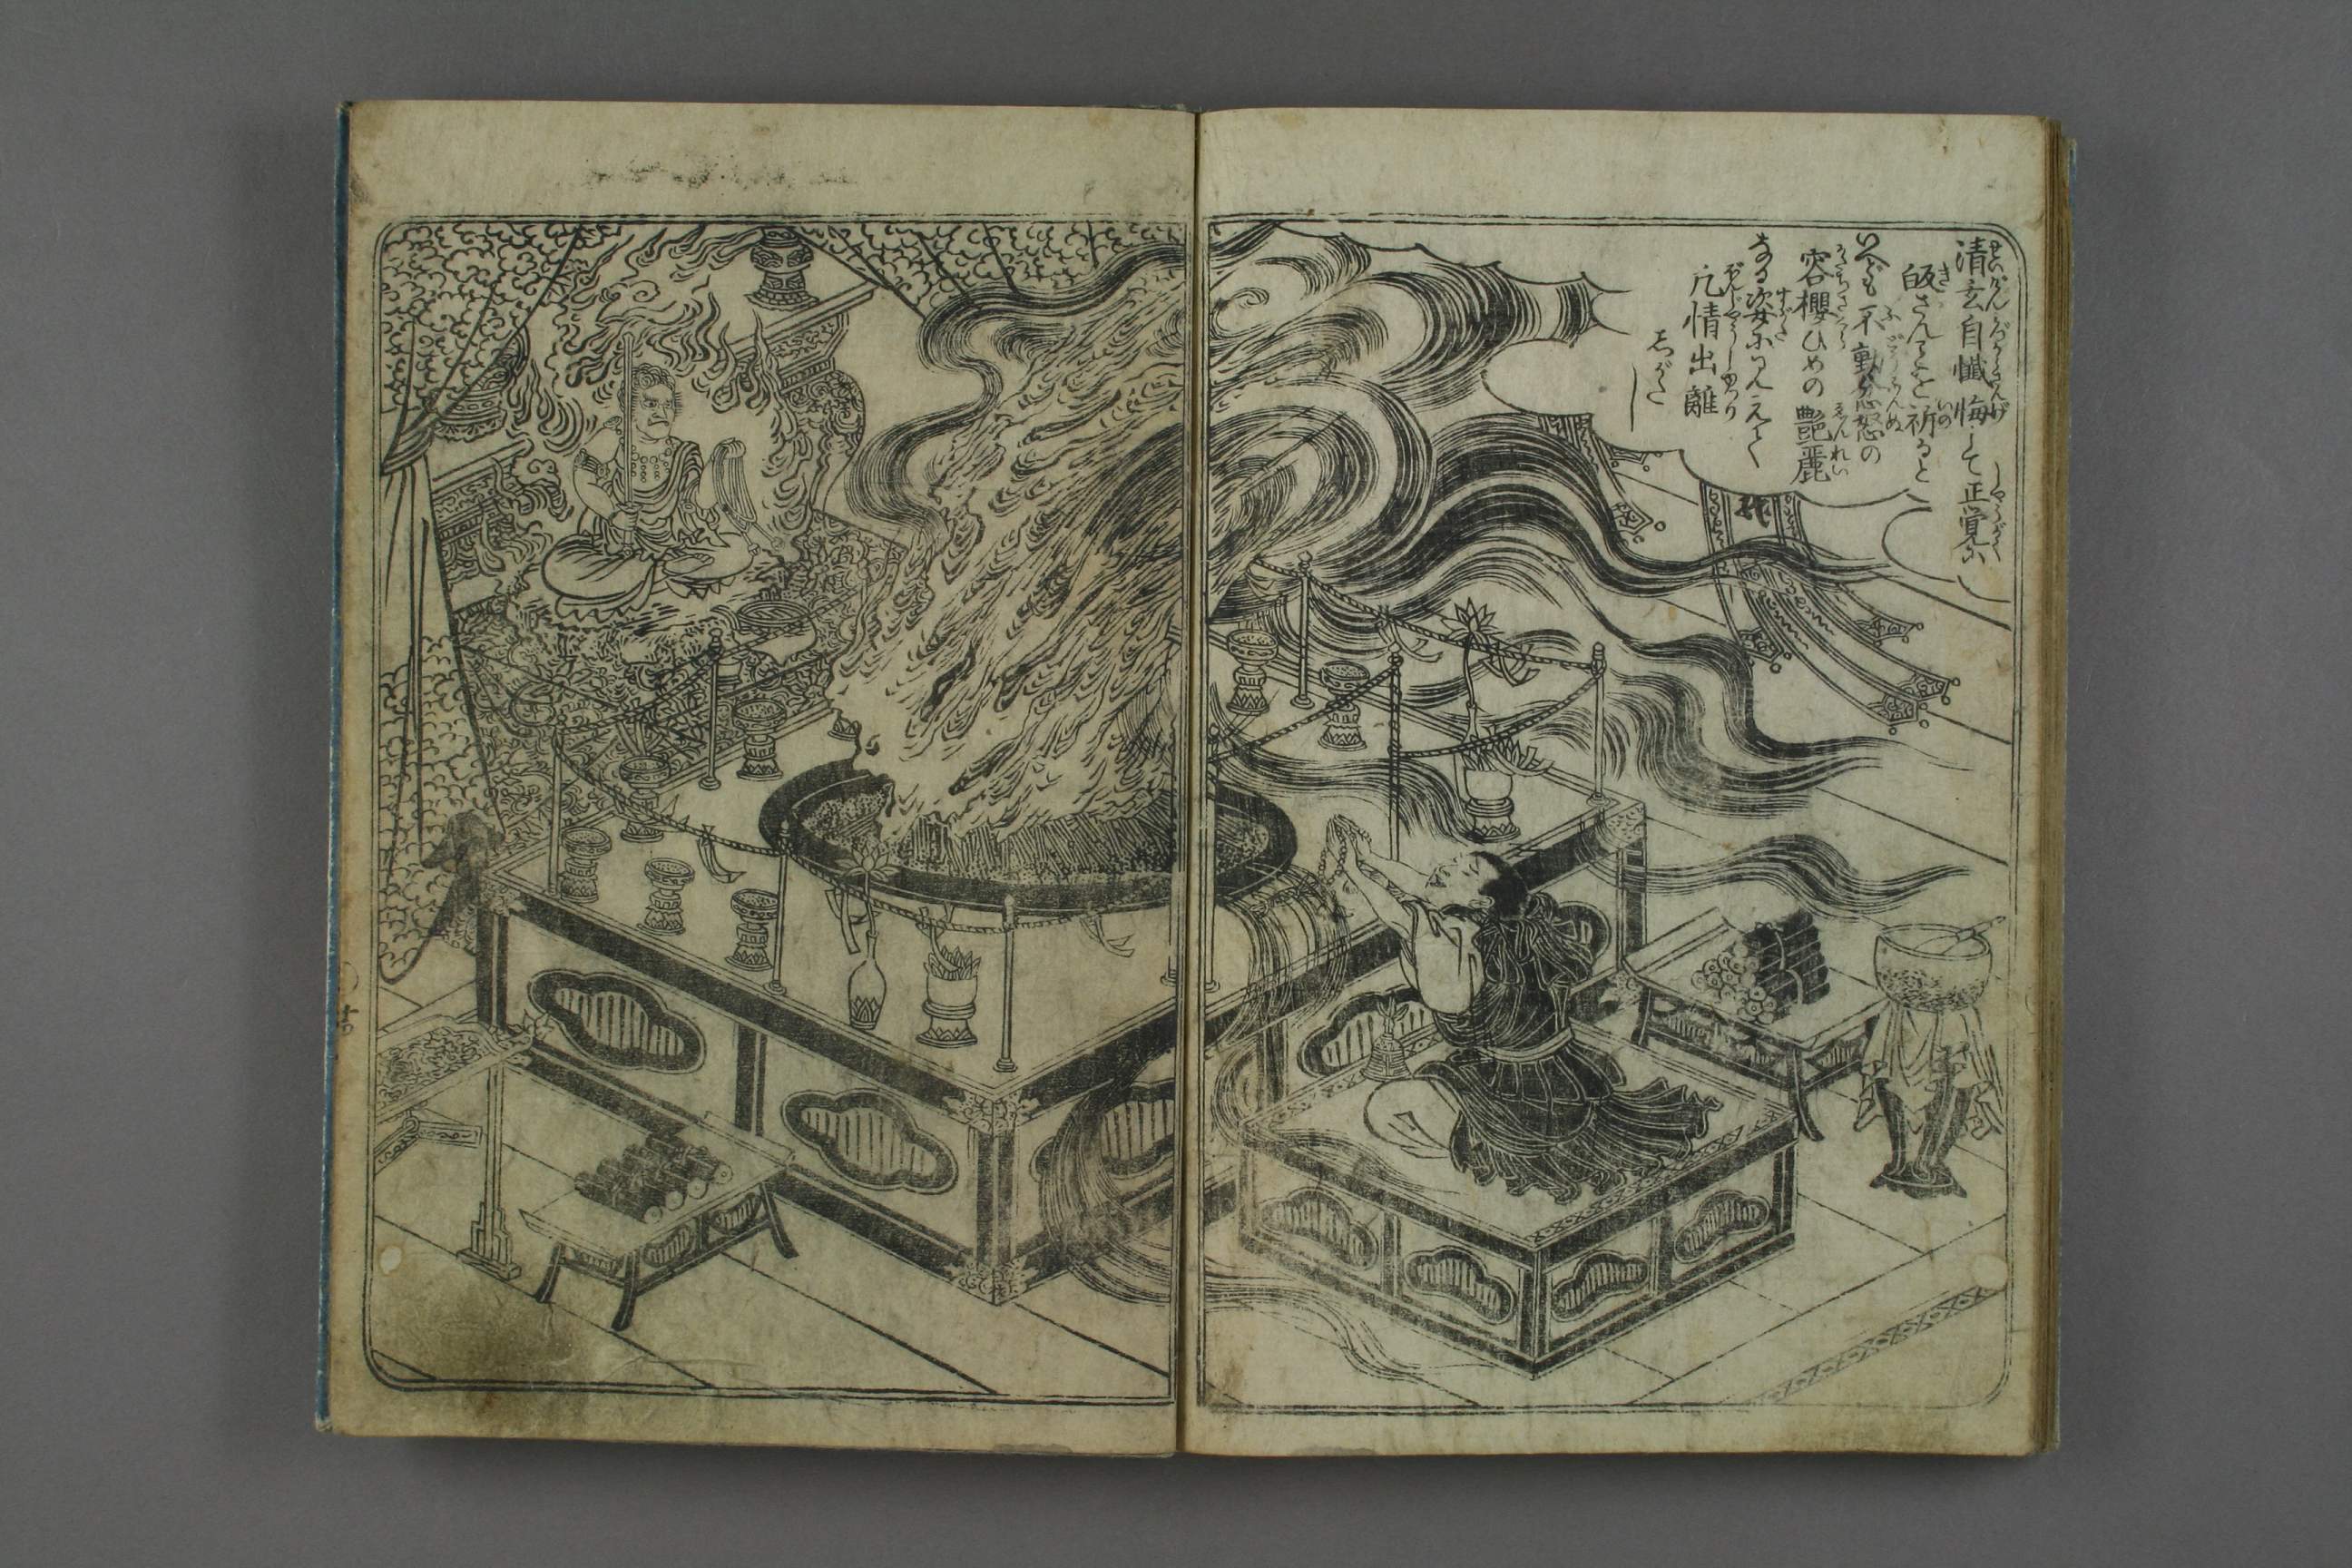 清玄自懺悔して正覚に
皈さんことを祈ると
いへども不動忿怒の
容櫻ひめの艶麗
なる姿に見えて
凡情出離
しがたし